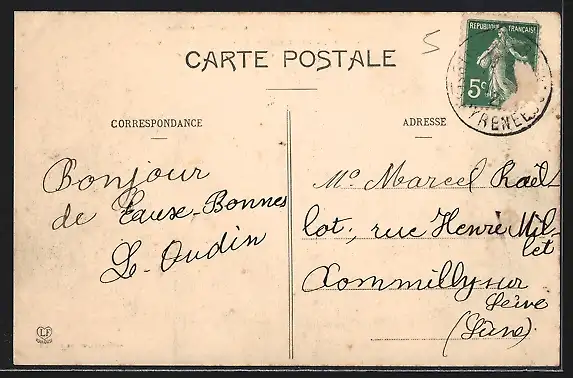 CARTE POSTALE
5
REPUBLIQUE FRANÇAISE
5c
PYRENEES
CORRESPONDANCE
ADRESSE
Bonjour
de Eause-Bonnes
L. Oudin
Mr Marcel Rail-
lot, rue Henri Mil-
let
sur
Seine
(Seine).
LF